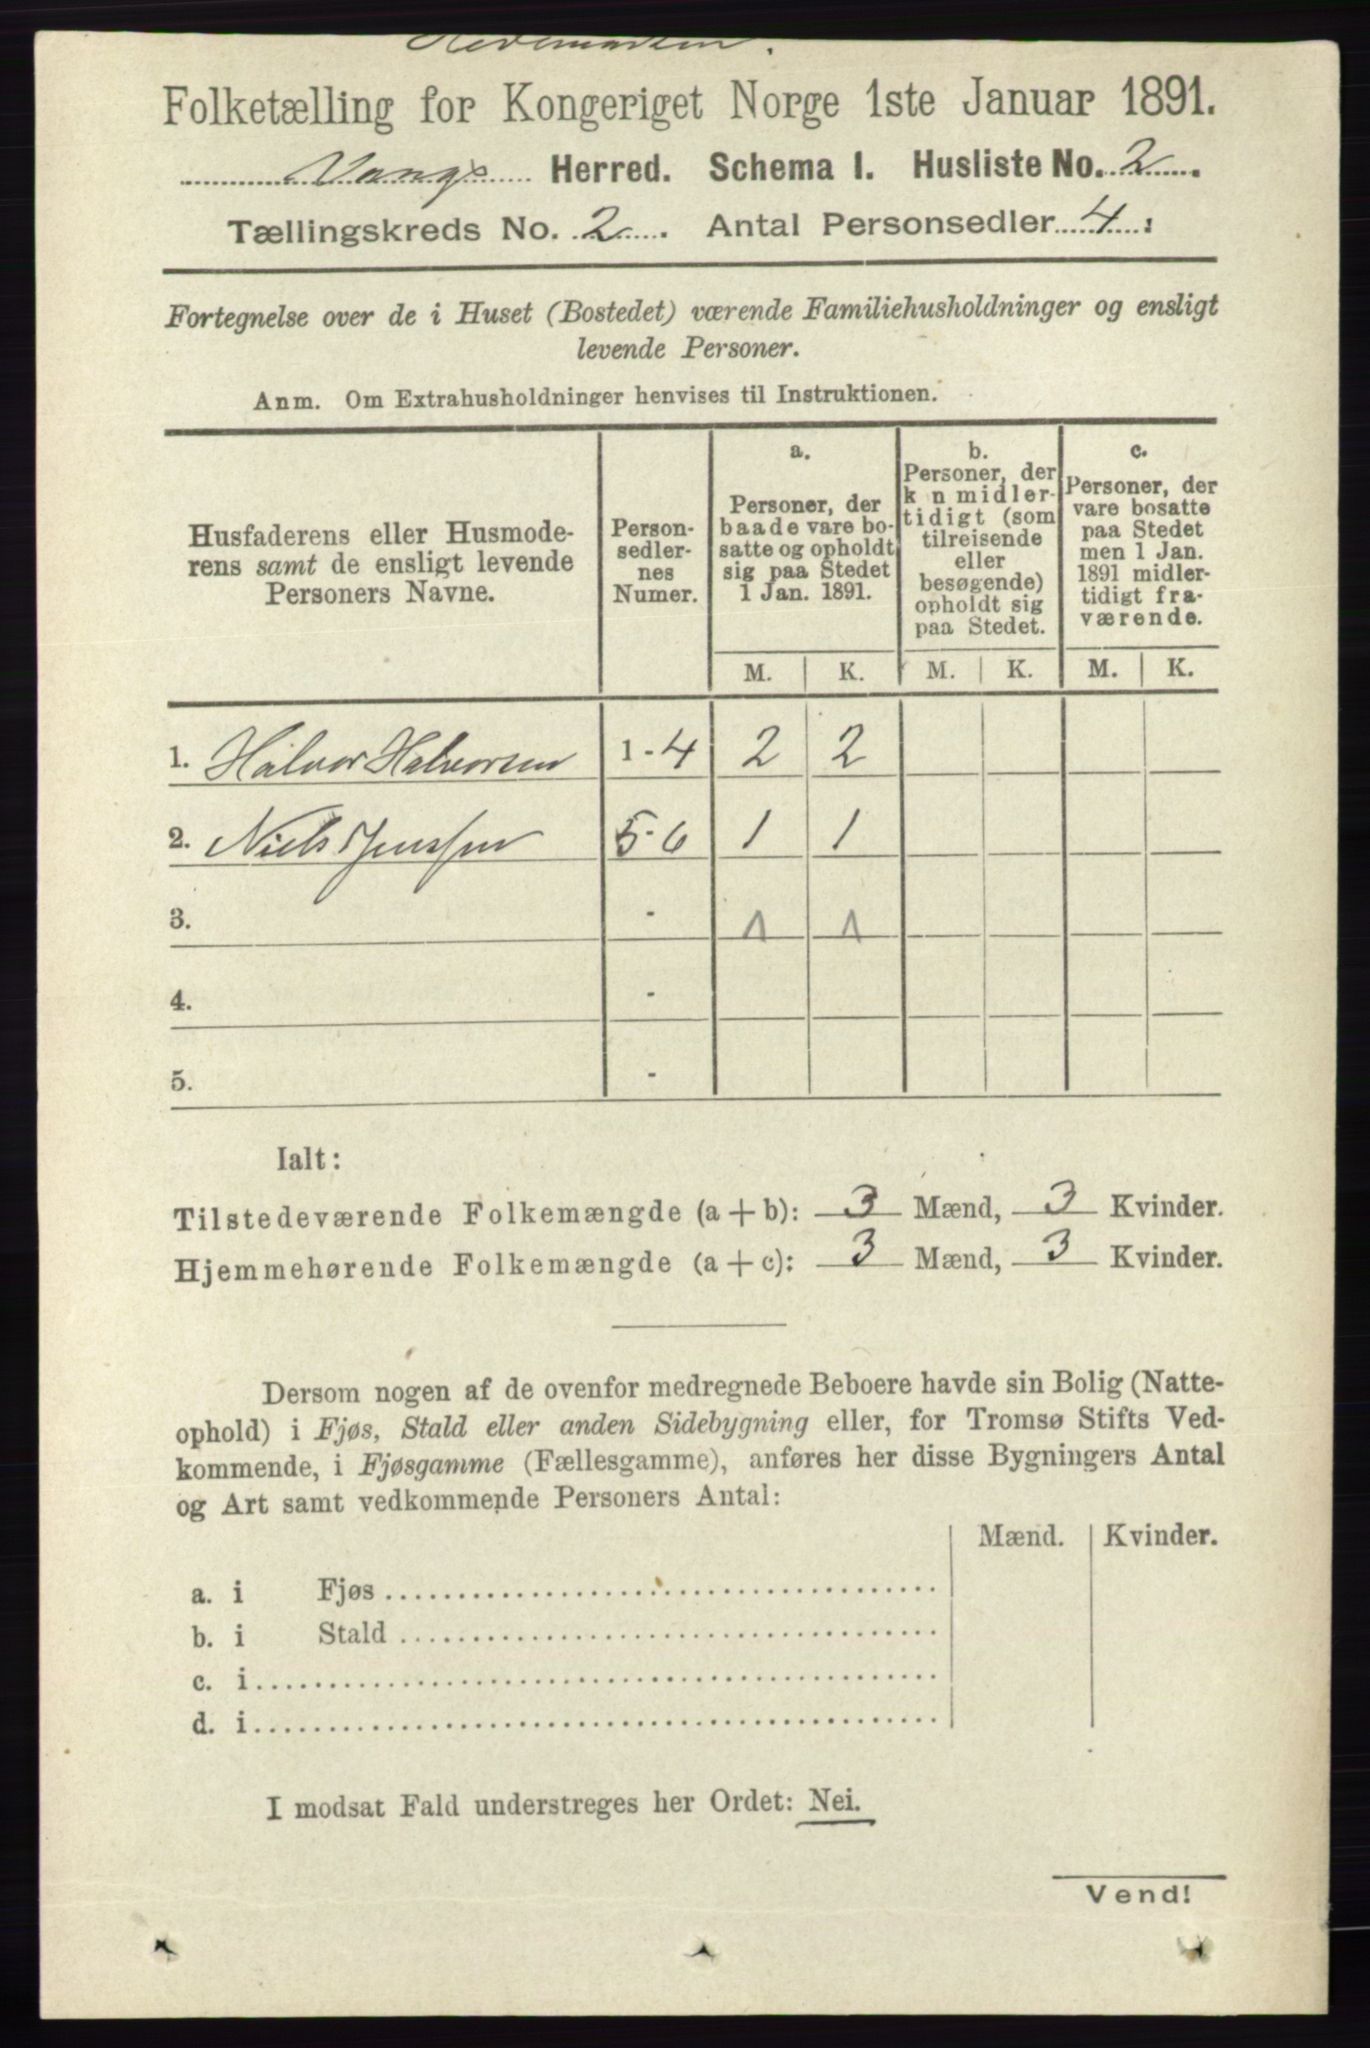 Hedemarken.
Folketælling for Kongeriget Norge 1ste Januar 1891.
Vangs Herred. Schema I. Husliste No. 2.
Tællingskreds No. 2. Antal Personsedler 4.
Fortegnelse over de i Huset (Bostedet) værende Familiehusholdninger og ensligt
levende Personer.
Anm. Om Extrahusholdninger henvises til Instruktionen.
Husfaderens eller Husmode-
rens samt de ensligt levende
Personers Navne.
Person-
sedler-
nes
Numer.
a.
Personer, der
baade vare bo-
satte og opholdt
sig paa Stedet
1 Jan. 1891.
b.
Personer, der
k n midler-
tidigt (som
tilreisende
eller
besøgende)
opholdt sig
paa Stedet.
c.
Personer, der
vare bosatte
paa Stedet
men 1 Jan.
1891 midler-
tidigt fra-
værende.
M. K. M. K. M. K.
1. Halvor Halvorsen 1-4 2 2
2. Niels Jenssen 5-6 1 1
3. - 1 1
4. -
5. -
Ialt:
Tilstedeværende Folkemængde (a + b): 3 Mænd, 3 Kvinder.
Hjemmehørende Folkemængde (a + c): 3 Mænd, 3 Kvinder.
Dersom nogen af de ovenfor medregnede Beboere havde sin Bolig (Natte-
ophold) i Fjøs, Stald eller anden Sidebygning eller, for Tromsø Stifts Ved-
kommende, i Fjøsgamme (Fællesgamme), anføres her disse Bygningers Antal
og Art samt vedkommende Personers Antal:
Mænd. Kvinder.
a. i Fjøs
b. i Stald
c. i
d. i
I modsat Fald understreges her Ordet: Nei.
Vend!